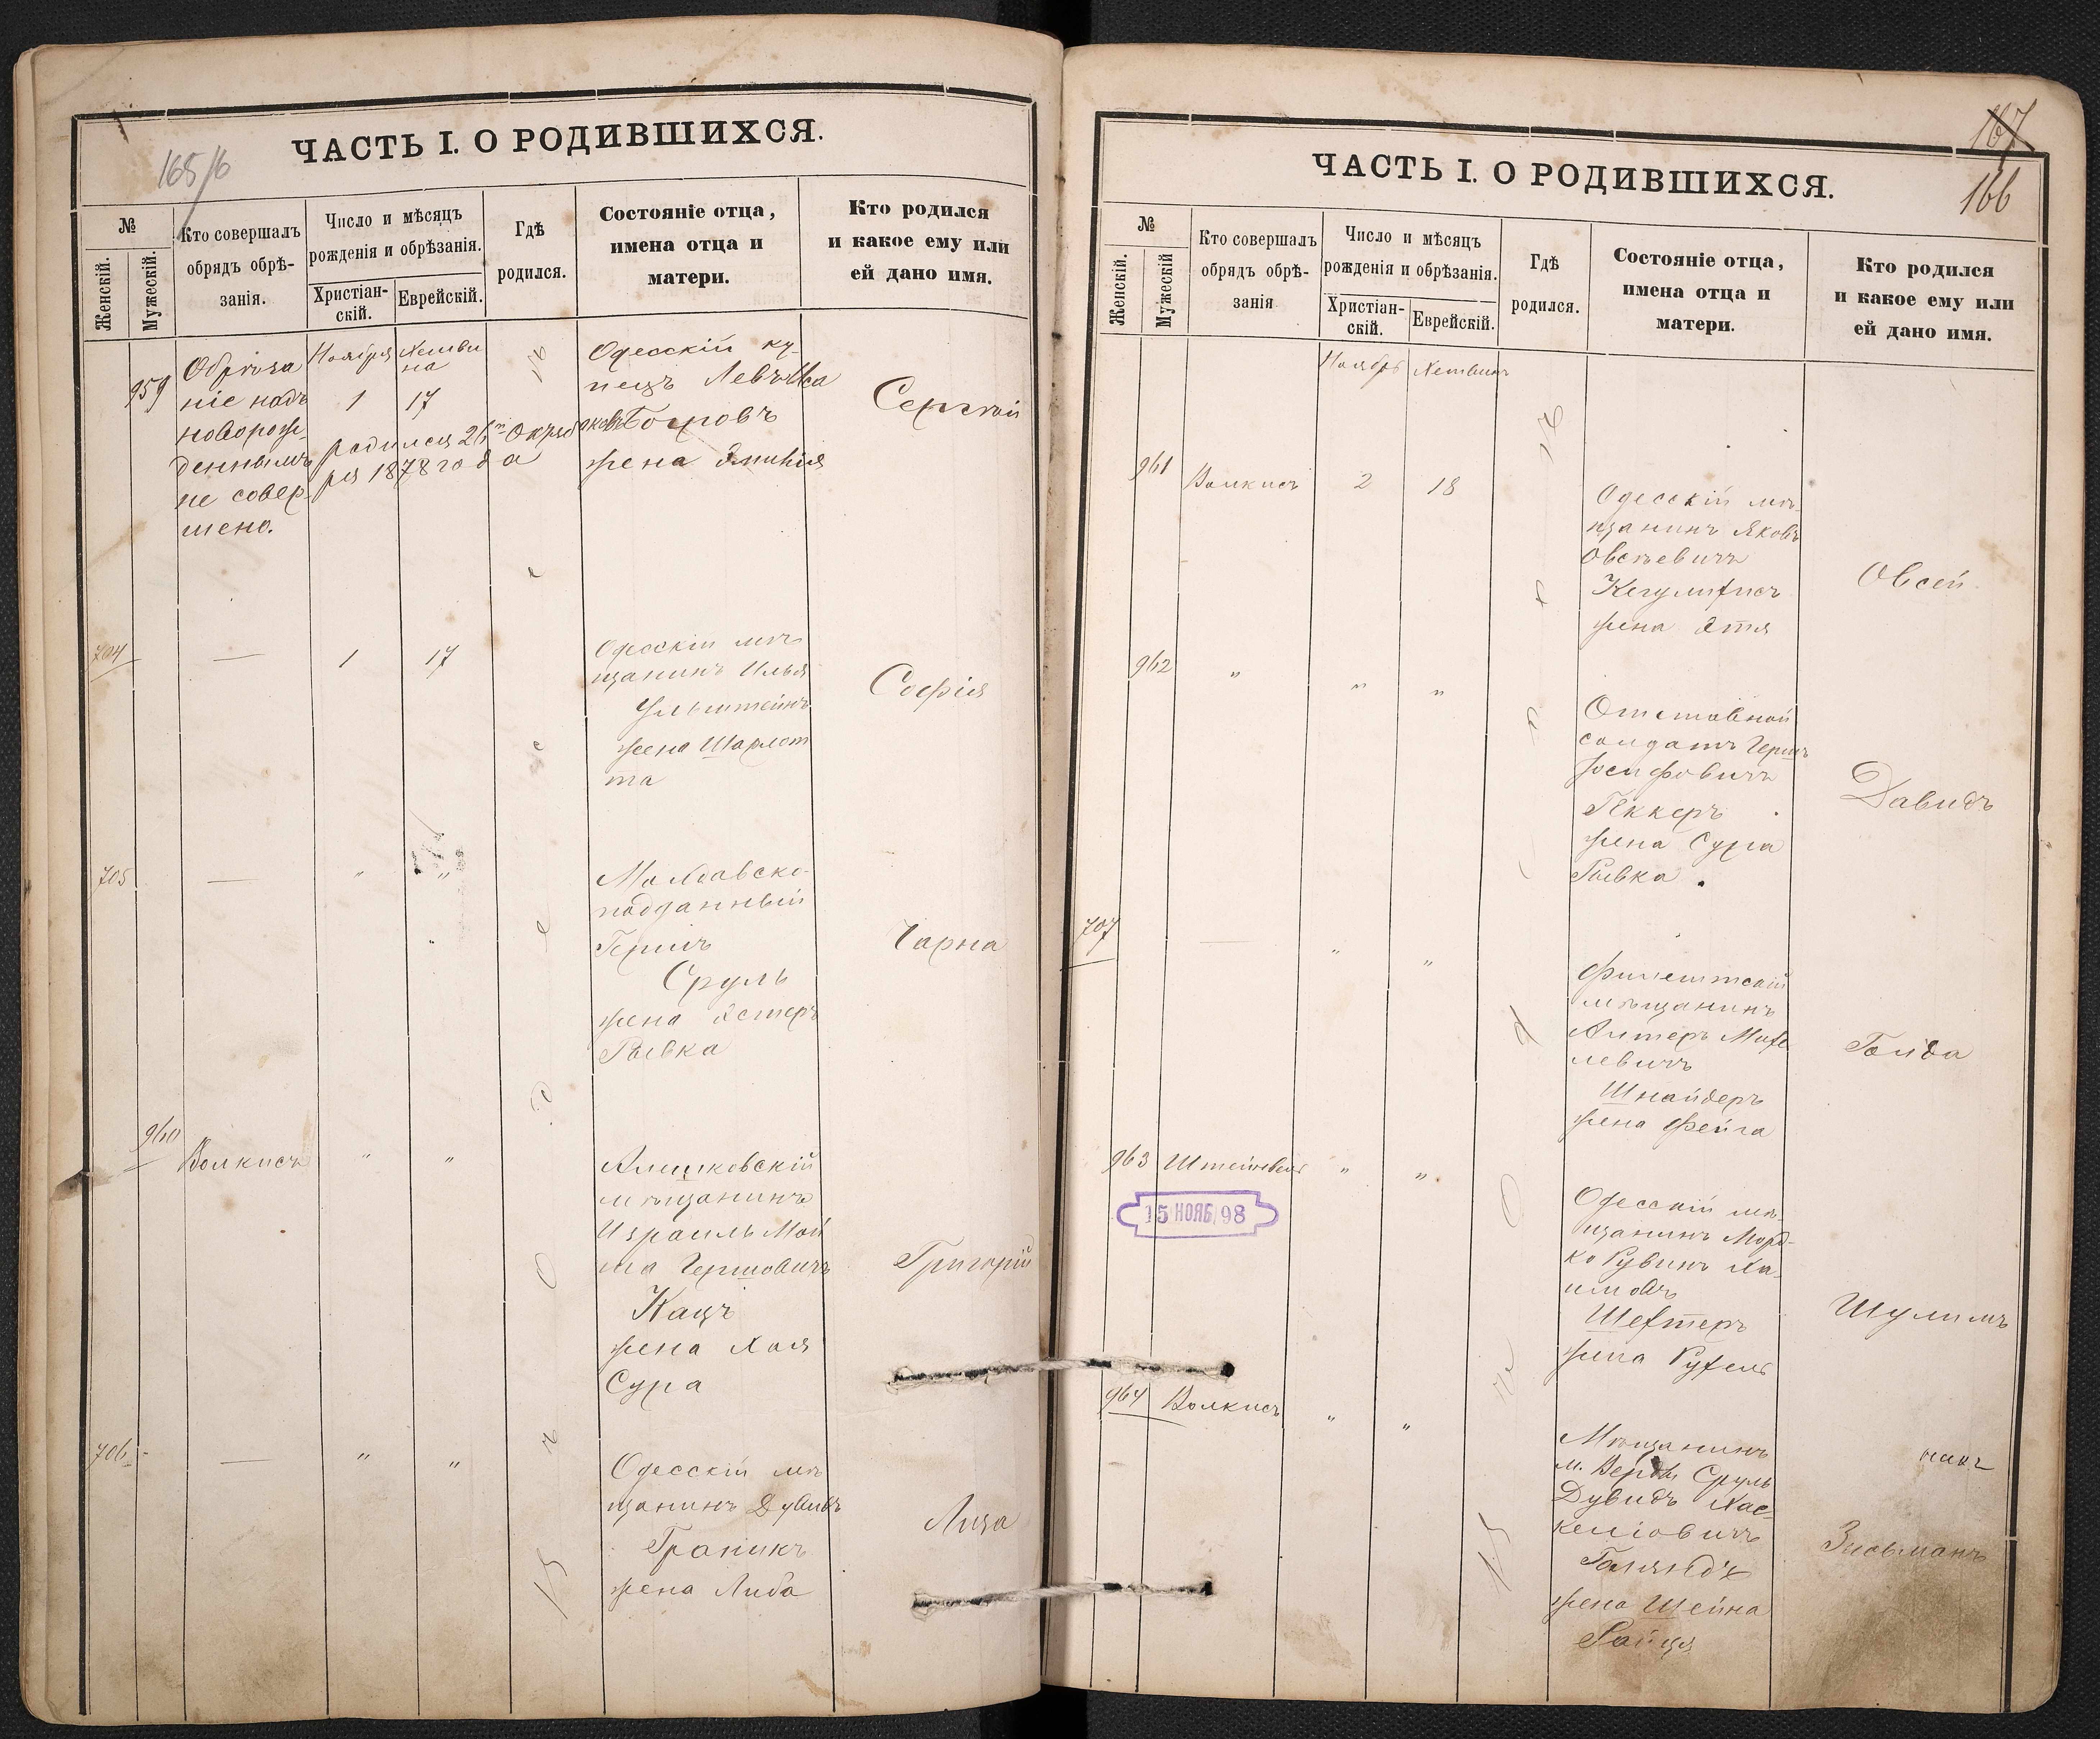 165/6
ЧАСТЬ I. О РОДИВШИХСЯ.
№
Женскій.
Мужескій.
Кто совершалъ
обрядъ обрѣ-
занія.
Число и мѣсяцъ
рожденія и обрѣзанія.
Христіан-
скій.
Еврейскій.
Гдѣ
родился.
Состояніе отца,
имена отца и
матери.
Кто родился
и какое ему или
ей дано имя.
959
Обрѣза
ніе надъ
новорож-
деннымъ
не совер-
шено.
Ноября
1
17
родился 26го Октяб
ря 1878 года
Одесскій ку-
пецъ Левъ Иса
аковъ Богровъ
жена Эмилія
Сергѣй
704
—
1
17
Одесскій мѣ
щанинъ Илья
жена Шарлот
та
Софія
705
—
"
"
Молдавско-
подданный
Гершъ
Сруль
жена Эстеръ
Рывка
Чарна
960
Волкисъ
"
"
Алешковскій
мѣщанинъ
Израиль Мой
ша Гершовичъ
Кацъ
жена Хая
Сура
Григорій
706
—
"
"
Одесскій мѣ
щанинъ Дувидъ
Граникъ
жена Либа
Лиза
167
166
ЧАСТЬ I. О РОДИВШИХСЯ.
№
Женскій.
Мужескій
Кто совершалъ
обрядъ обрѣ-
занія
Число и мѣсяцъ
рожденія и обрѣзанія.
Христіан-
скій.
Еврейскій.
Гдѣ
родился.
Состояніе отца,
имена отца и
матери.
Кто родился
и какое ему или
ей дано имя.
Ноябрь
961
Волкисъ
2
18
Одесскій мѣ-
щанинъ Яковъ
Овсѣевичъ
жена Этя
Овсей
962
"
"
"
Отставной
солдатъ Гершъ
Іосифовичъ
Геккеръ
жена Сура
Рывка
Давидъ
707
—
"
"
мѣщанинъ
Алтеръ Михе
левичъ
Шнайдеръ
жена Фейга
Голда
963
"
"
15 НОЯБ 98
Одесскій мѣ-
щанинъ Морд-
ко Рувинъ Ха-
имовъ
Шехтеръ
жена Рухель
Шулимъ
964
Волкисъ
"
"
Мѣщанинъ
Сруль
Дувидъ Хас-
келіовичъ
жена Шейна
Райця
Зисьманъ